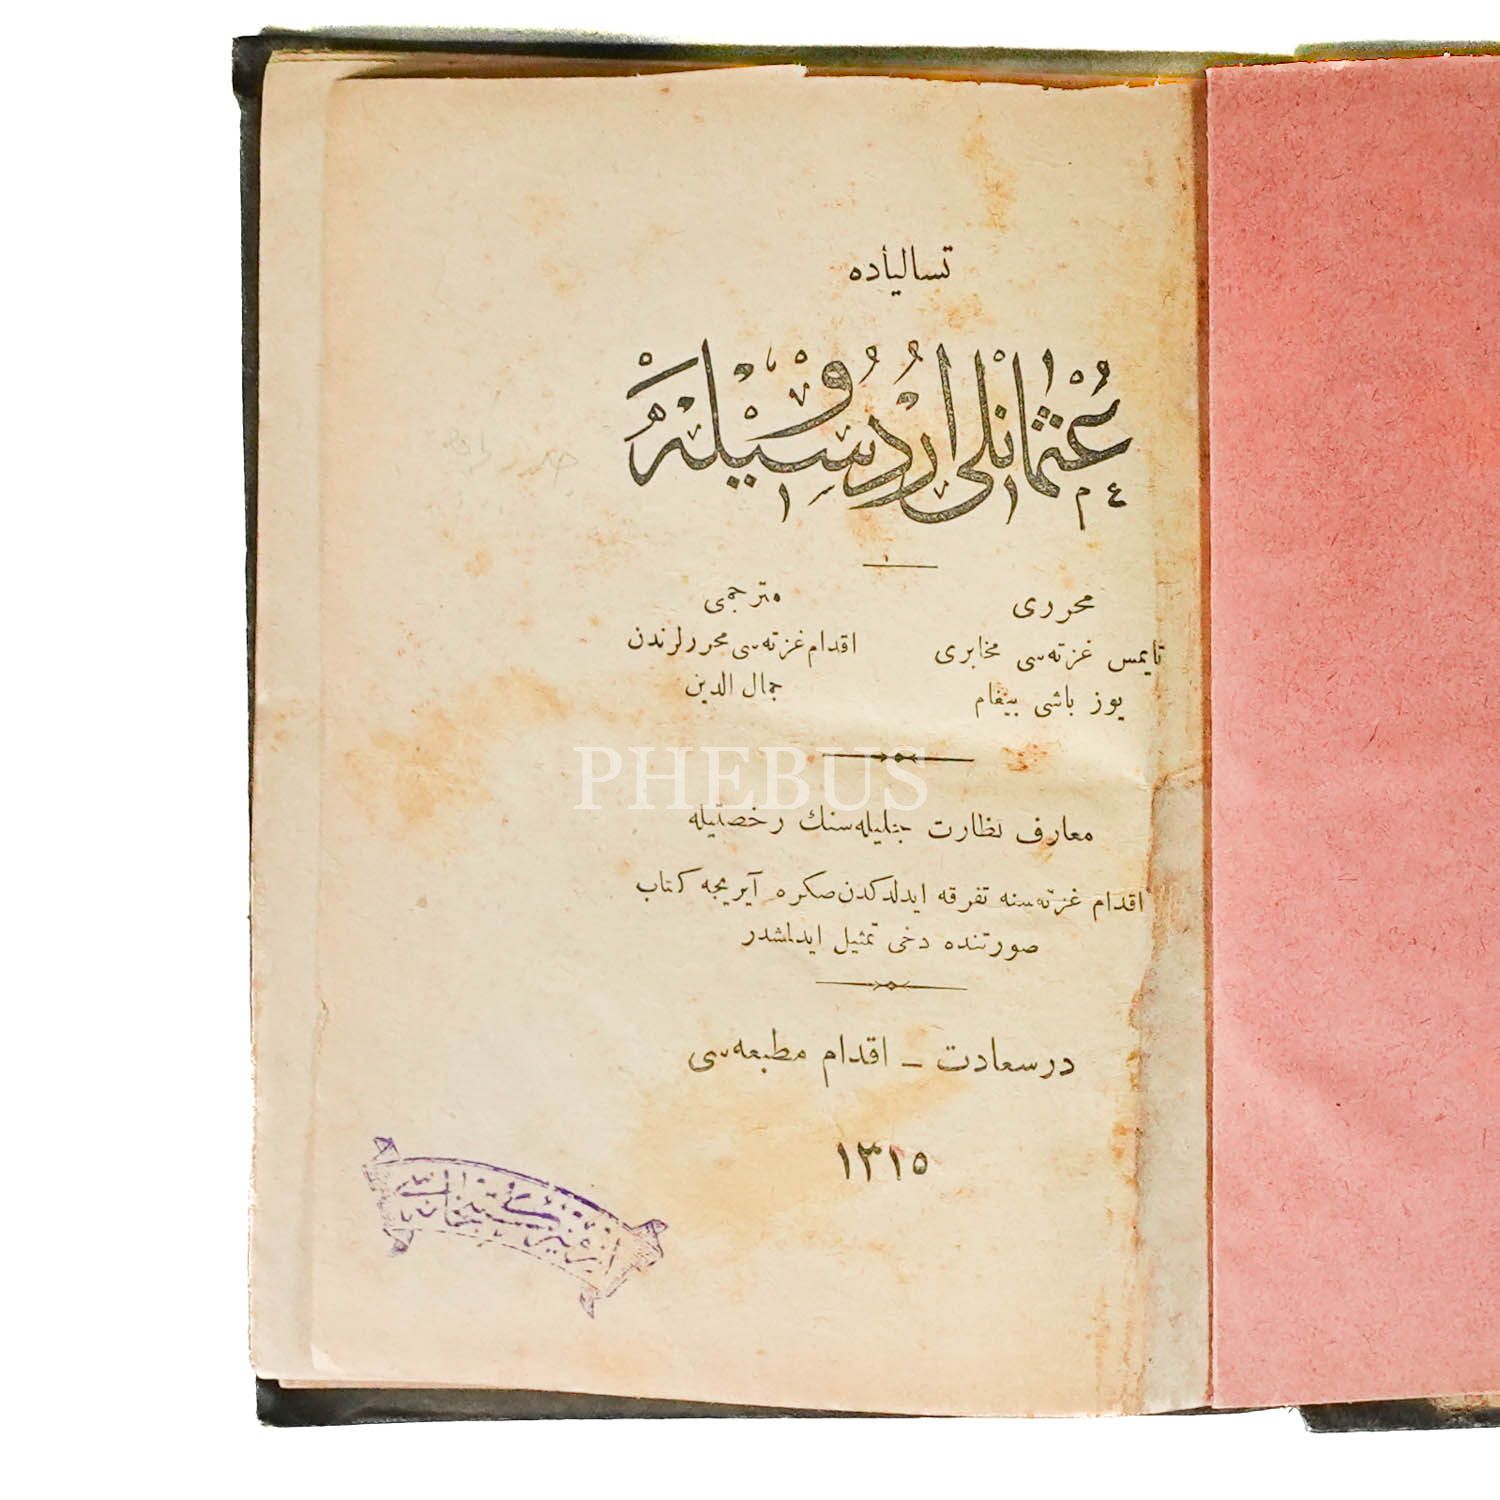 تساليأده
عثمانلى اردوسيله
محررى
تايمس غزته‌سى مخابرى
يوز باشى بينغام
مترجمى
اقدام غزته‌سى محررلرندن
جمال الدين
PHEBUS
معارف نظارت جليله‌سنك رخصتيله
اقدام غزته‌سنه تفرقه ايدلدكدن صكره آيريجه كتاب
صورتنده دخى تمثيل ايدلشدر
درسعادت ــ اقدام مطبعه‌سى
١٣١٥